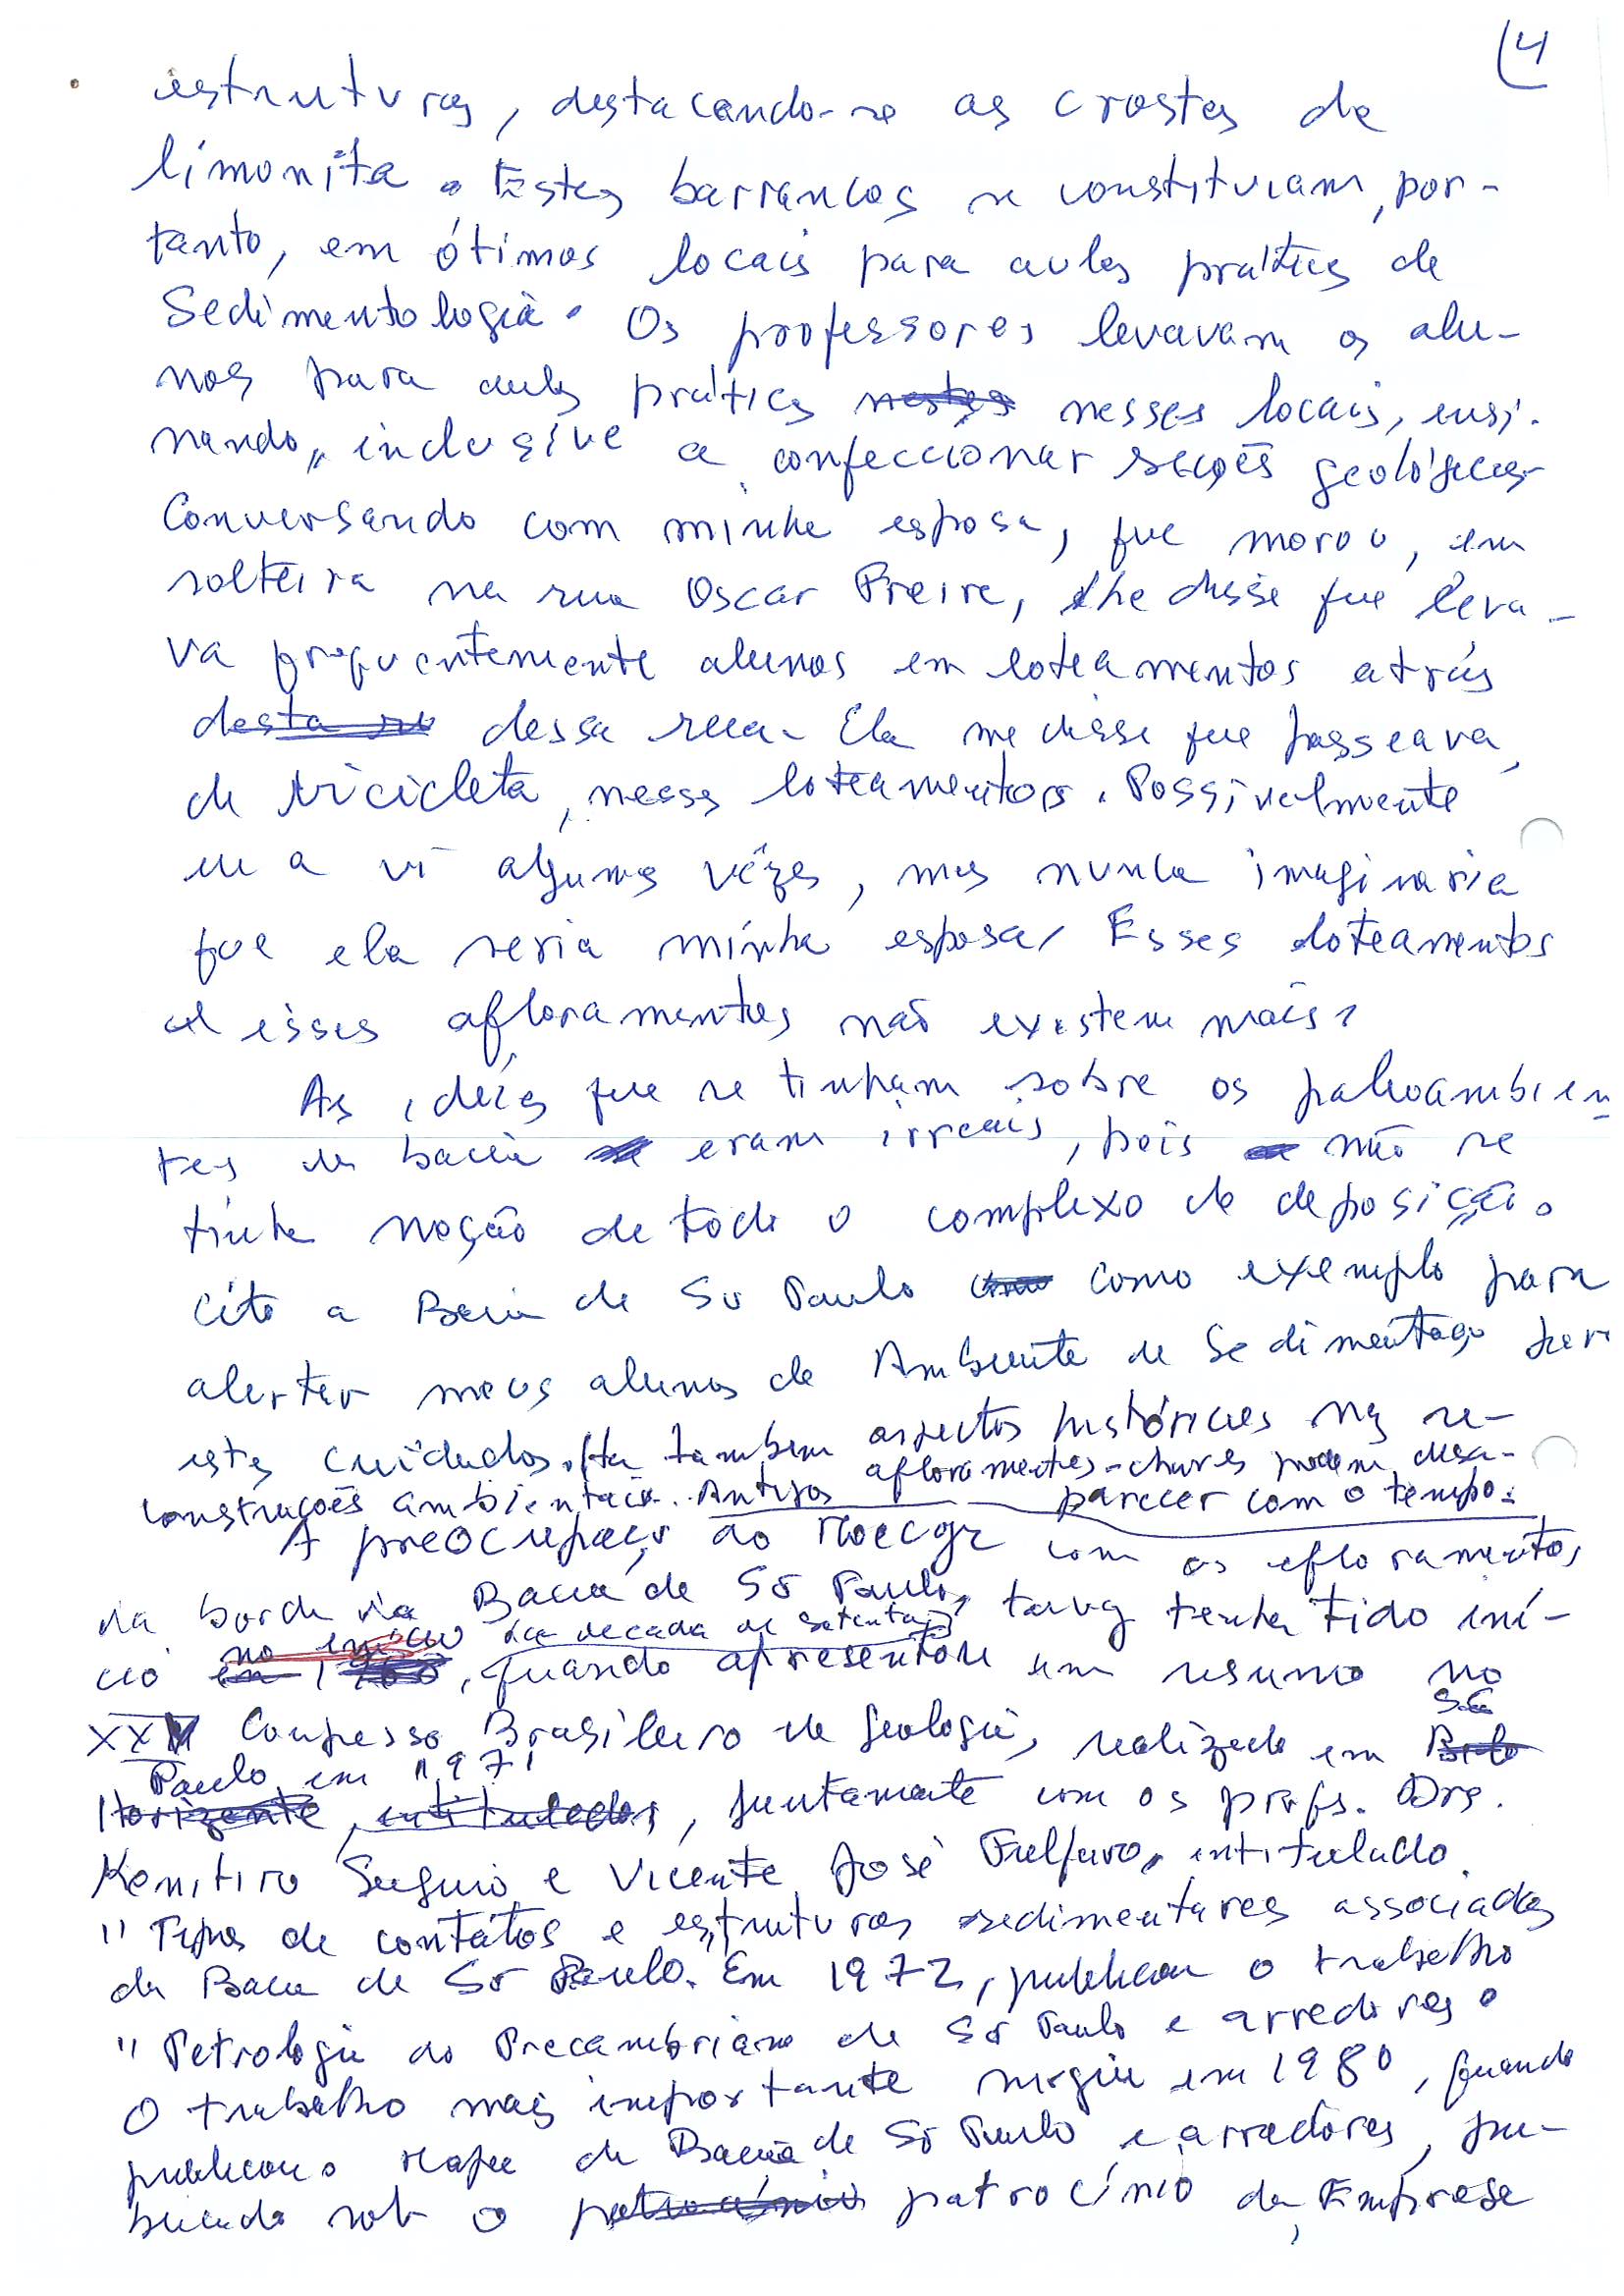 4
estruturas, destacando-se as crostas de
limonita. Estes barrancos se constituiam, por-
tanto, em ótimos locais para aulas práticas de
Sedimentologia. Os professores levavam os alu-
nos para aulas práticas nestes nesses locais, ensi-
nando, inclusive a confeccionar secções geológicas
Conversando com minha esposa, que morou, em
solteira na rua Oscar Freire, lhe disse que leva-
va frequentemente alunos em loteamentos atrás
desta ru dessa rua. Ela me disse que passeava,
de bicicleta, nesses loteamentos. Possivelmente
eu a vi algumas vêzes, mas nunca imaginaria
que ela seria minha esposa! Esses loteamentos
e esses afloramentos não existem mais.
As idéias que se tinham sobre os paleoambien
tes da bacia eram irreais, pois não se
tinha noção de todo o complexo de deposição.
Cito a Bacia de São Paulo como exemplo para
alertar meus alunos de Ambiente de Sedimentação para
estes cuidados. Há também aspectos históricos nas re-
construções ambientais. Antigos afloramentos-chaves podem desa-
parecer com o tempo.
A preocupação do Moacyr com os afloramentos
da borda da Bacia de São Paulo, talvez tenha tido iní-
cio em no início da decada de setenta, quando apresentou um resumo no
XXV Congresso Brasileiro de Geologia, realizado em Belo São
Horizonte Paulo em 1971, intitulados, juntamente com os profs. Drs.
Kenitiro Suguio e Vicente José Fulfaro, intitulado
"Tipos de contátos e estruturas sedimentares associadas
da Bacia de São Paulo. Em 1972, publicou o trabalho
"Petrologia do Precambriano de São Paulo e arredores"
O trabalho mais importante surgiu em 1980, quando
publicou o Mapa da Bacia de São Paulo e arredores, pu-
blicado sob o patrocínio patrocínio da Empresa